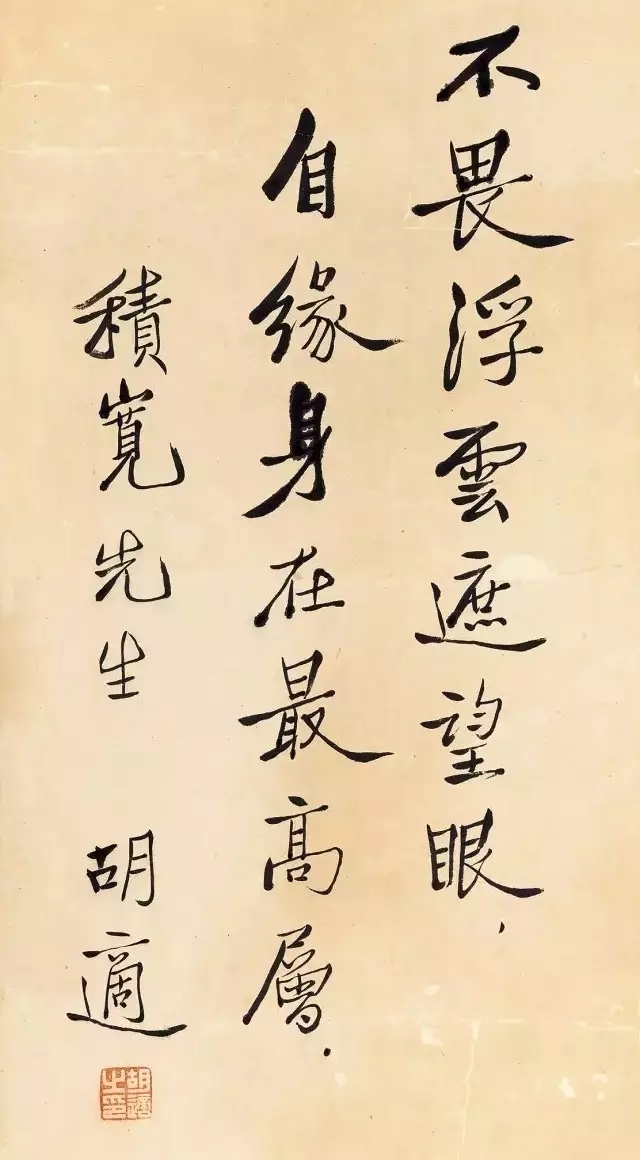 不畏浮雲遮望眼，
自缘身在最高層．
積寬先生 胡適
胡適之印